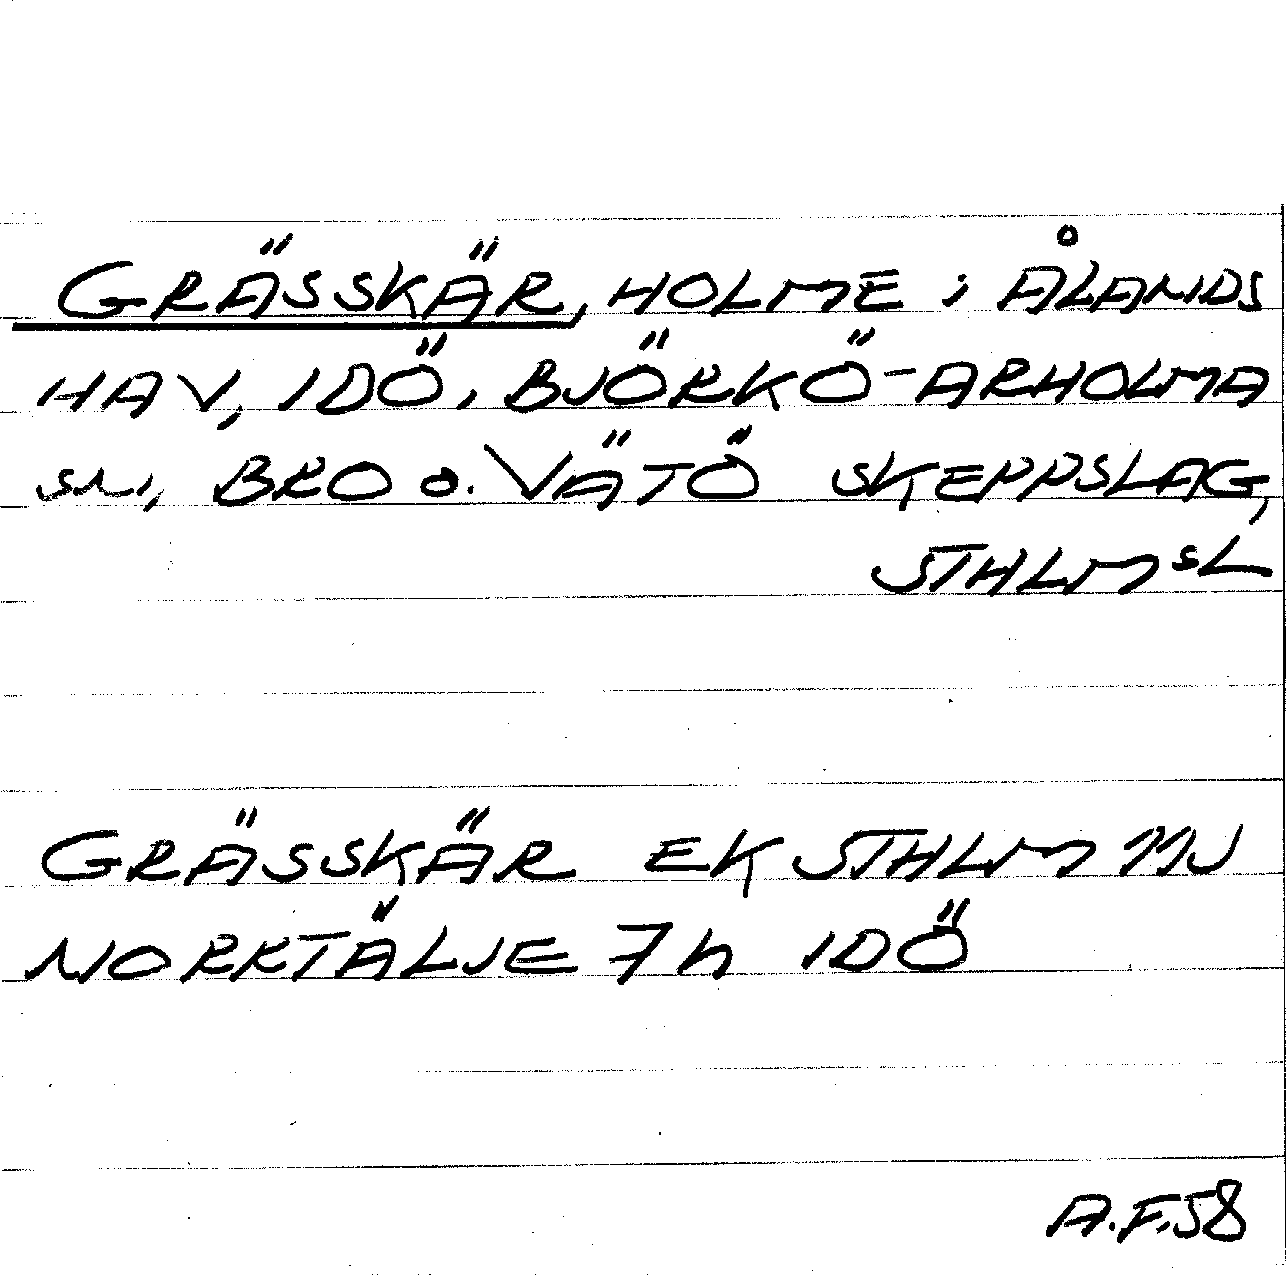 GRÄSSKÄR, HOLME i ÅLANDS
HAV, IDÖ, BJÖRKÖ-ARHOLMA
sn, BRO o. VÄTÖ SKEPPSLAG,
STHLMsL
GRÄSSKÄR EK STHLM 11J
NORRTÄLJE 7h IDÖ
A.F. 58